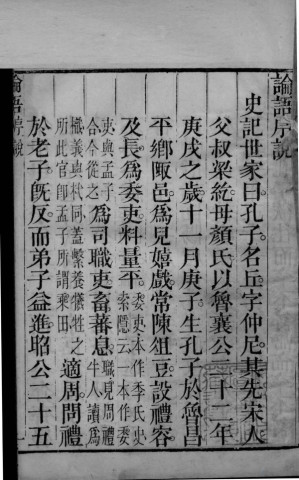 論語序説
史記世家曰孔子名丘字仲尼其先宋人
父叔梁紇母顏氏以魯襄公二十二年
庚戌之歲十一月庚子生孔子於魯昌
平鄉陬邑為兒嬉戲常陳俎豆設禮容
及長為委吏料量平委吏本作季氏史
索隱云一本作委
吏與孟子
合今從之為司職吏畜蕃息職見周禮
牛人讀為
樴義與杙同蓋繫養犧牲之
所此官即孟子所謂乘田適周問禮
於老子旣反而弟子益進昭公二十五